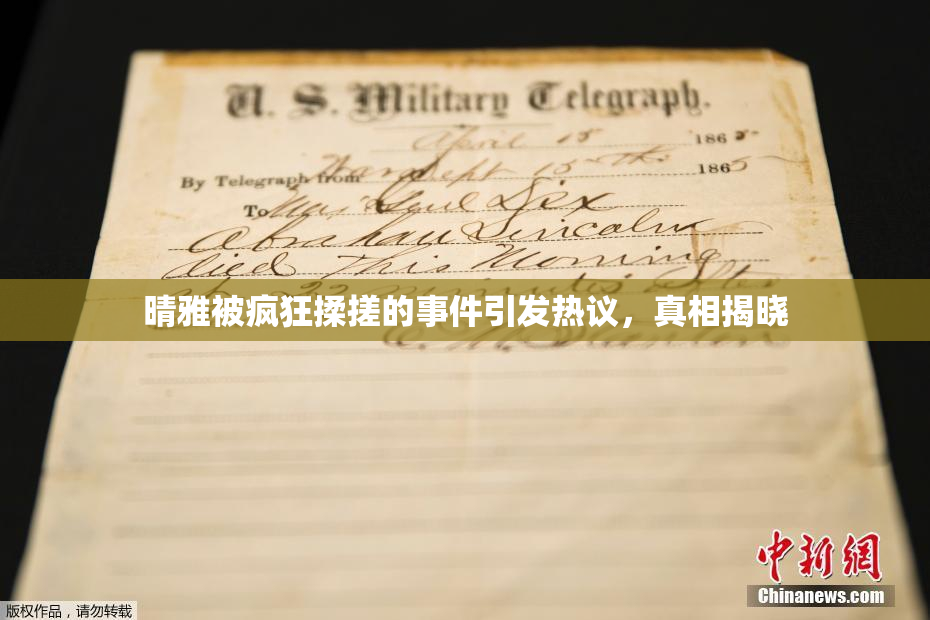 U. S. Military Telegraph.
April 15 1865
By Telegraph from War Dept 15th 1865
To Maj Genl Dix
Abraham Lincoln
died This Morning
at 22 minutes after
晴雅被疯狂揉搓的事件引发热议，真相揭晓
E. M. Stanton
中新網
Chinanews.com
版权作品，请勿转载